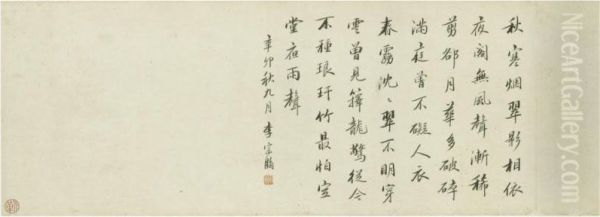 秋寒烟翠影相依
夜閣無風聲漸稀
剪卻月華多破碎
滿庭曾不礙人衣
春靄沈々翠不明穿
雲曾見籜龍驚從今
不種琅玕竹最怕空
堂夜雨聲
辛卯秋九月 李宗瀚
NiceArtGallery.com